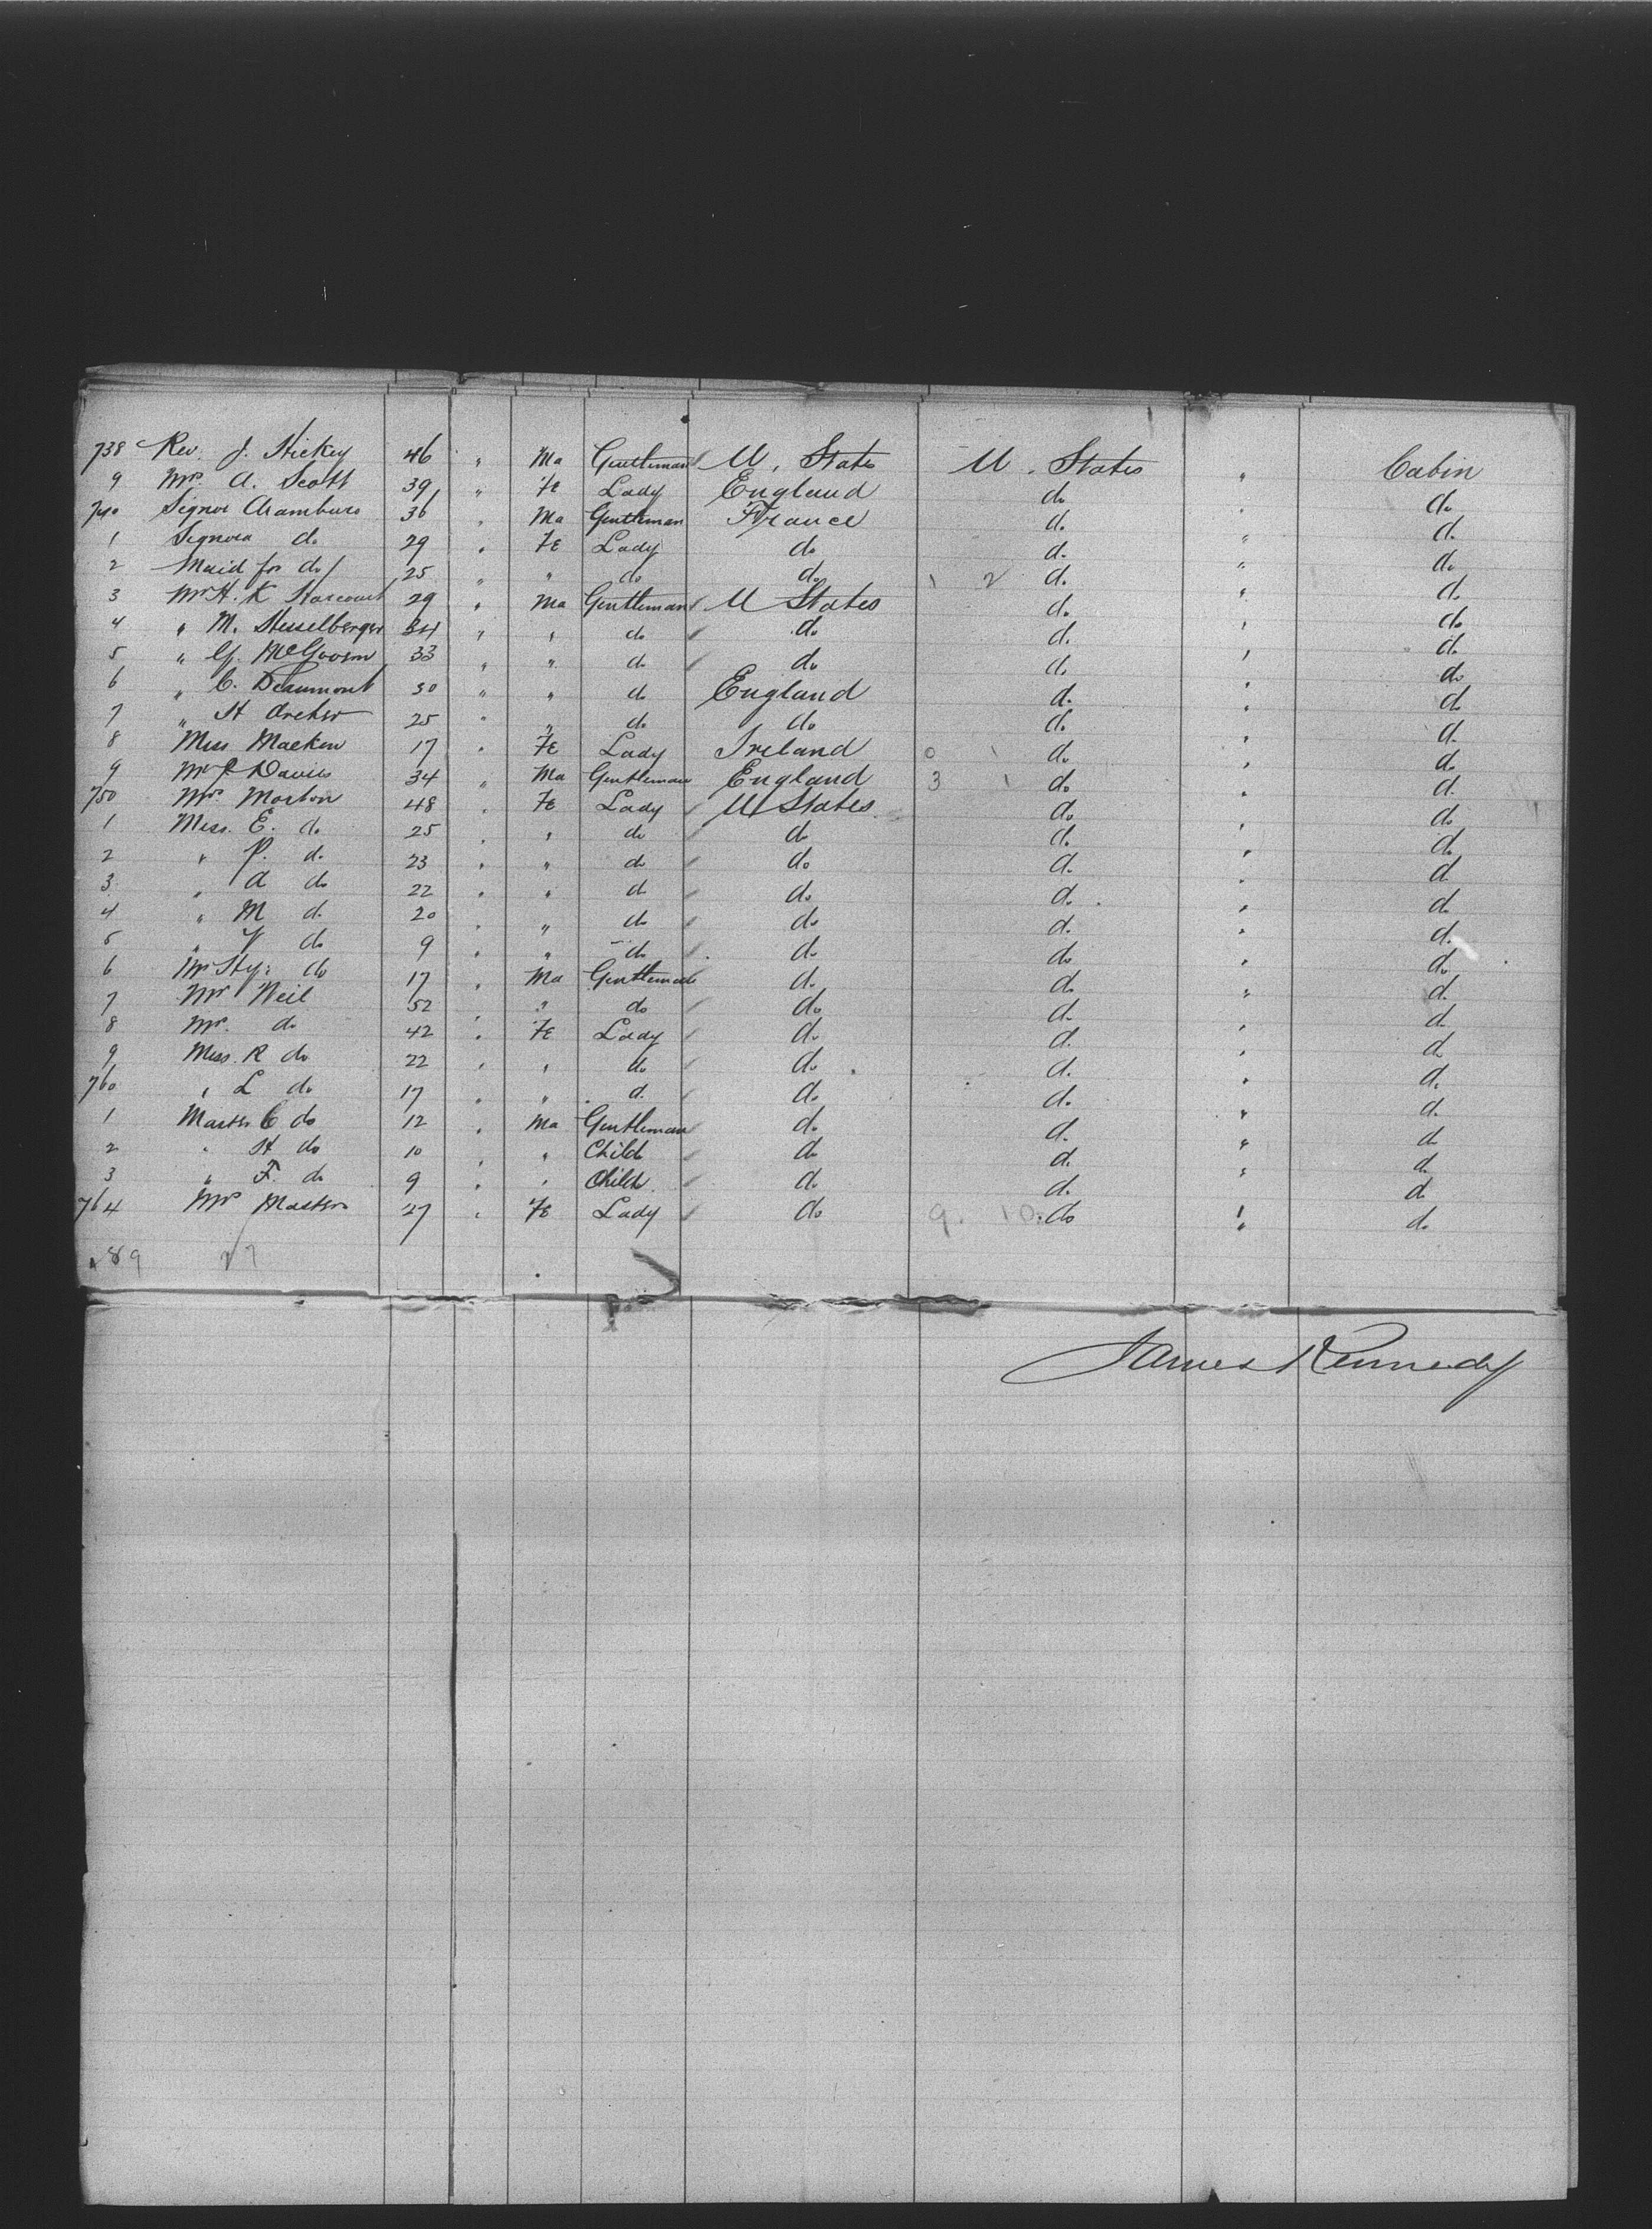 738 Rev. J. Hickey 46 " Ma Gentleman U. States U. States " Cabin
9 Mrs. A. Scott 39 " Fe Lady England do " do
740 Signor Aramburo 36 " Ma Gentleman France do " do
1 Signora do 29 " Fe Lady do do " do
2 Maid for do 25 " " do do 1 2 do " do
3 Mr H. K Harcourt 29 " Ma Gentleman U States do " do
4 " M. Hesselberger 34 " " do do do " do
5 " G. McGovern 33 " " do do do " do
6 " C. Beaumont 30 " " do England do " do
7 " H Archer 25 " " do do do " do
8 Miss Macken 17 " Fe Lady Ireland 0 1 do " do
9 Mr J Davies 34 " Ma Gentleman England 3 1 do " do
750 Mrs. Morton 48 " Fe Lady U States do " do
1 Miss. E. do 25 " " do do do " do
2 " P. do 23 " " do do do " do
3 " A do 22 " " do do do " do
4 " M do 20 " " do do do " do
5 " V do 9 " " do do do " do
6 Mr do 17 " Ma Gentleman do do " do
7 Mr Weil 52 " " do do do " do
8 Mrs. do 42 " Fe Lady do do " do
9 Miss. R do 22 " " do do do " do
760 " L do 17 " " do do do " do
1 Master C do 12 " Ma Gentleman do do " do
2 " H do 10 " " Child do do " do
3 " F. do 9 " " Child do do " do
764 Mrs Masters 27 " Fe Lady do 9. 10. do " do
27
James Kennedy